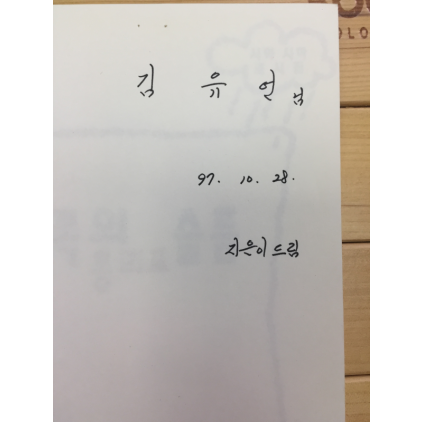 김 유 연 님
97. 10. 28.
지은이 드림